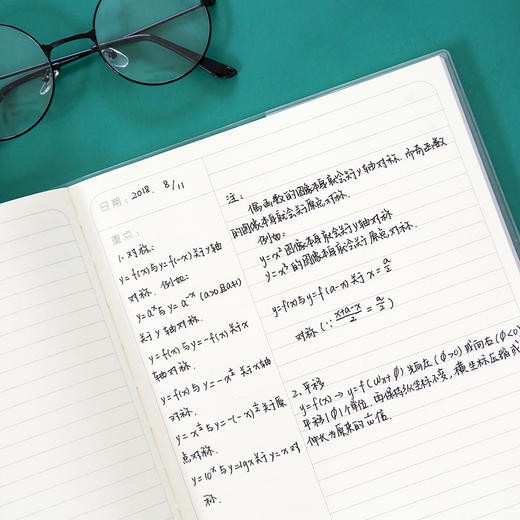 日期: 2018. 8/11
重点:
1. 对称:
y=f(x)与y=f(-x)关于y轴
对称. 例如:
y=aˣ与y=a⁻ˣ (a>0且a≠1)
关于y轴对称.
y=f(x)与y=-f(x)关于x
轴对称.
y=f(x)与y=-x^½关于x轴
对称.
y=x^½与y=-(-x)^½关于原
点对称.
y=10ˣ与y=lgx关于y=x对
称.
注:
偶函数的图像本身就会关于y轴对称. 而奇函数
的图像本身就会关于原点对称.
例如:
y=x²图像本身就会关于y轴对称
y=x³的图像本身就会关于原点对称.
y=f(x)与y=f(a-x)关于x=a/2
对称(∵(x+a-x)/2=a/2)
2. 平移
y=f(x)→y=f(ωx+φ)先向左(φ>0)或向右(φ<0)
平移|φ|个单位. 再保持纵坐标不变, 横坐标压缩或
伸长为原来的1/ω倍